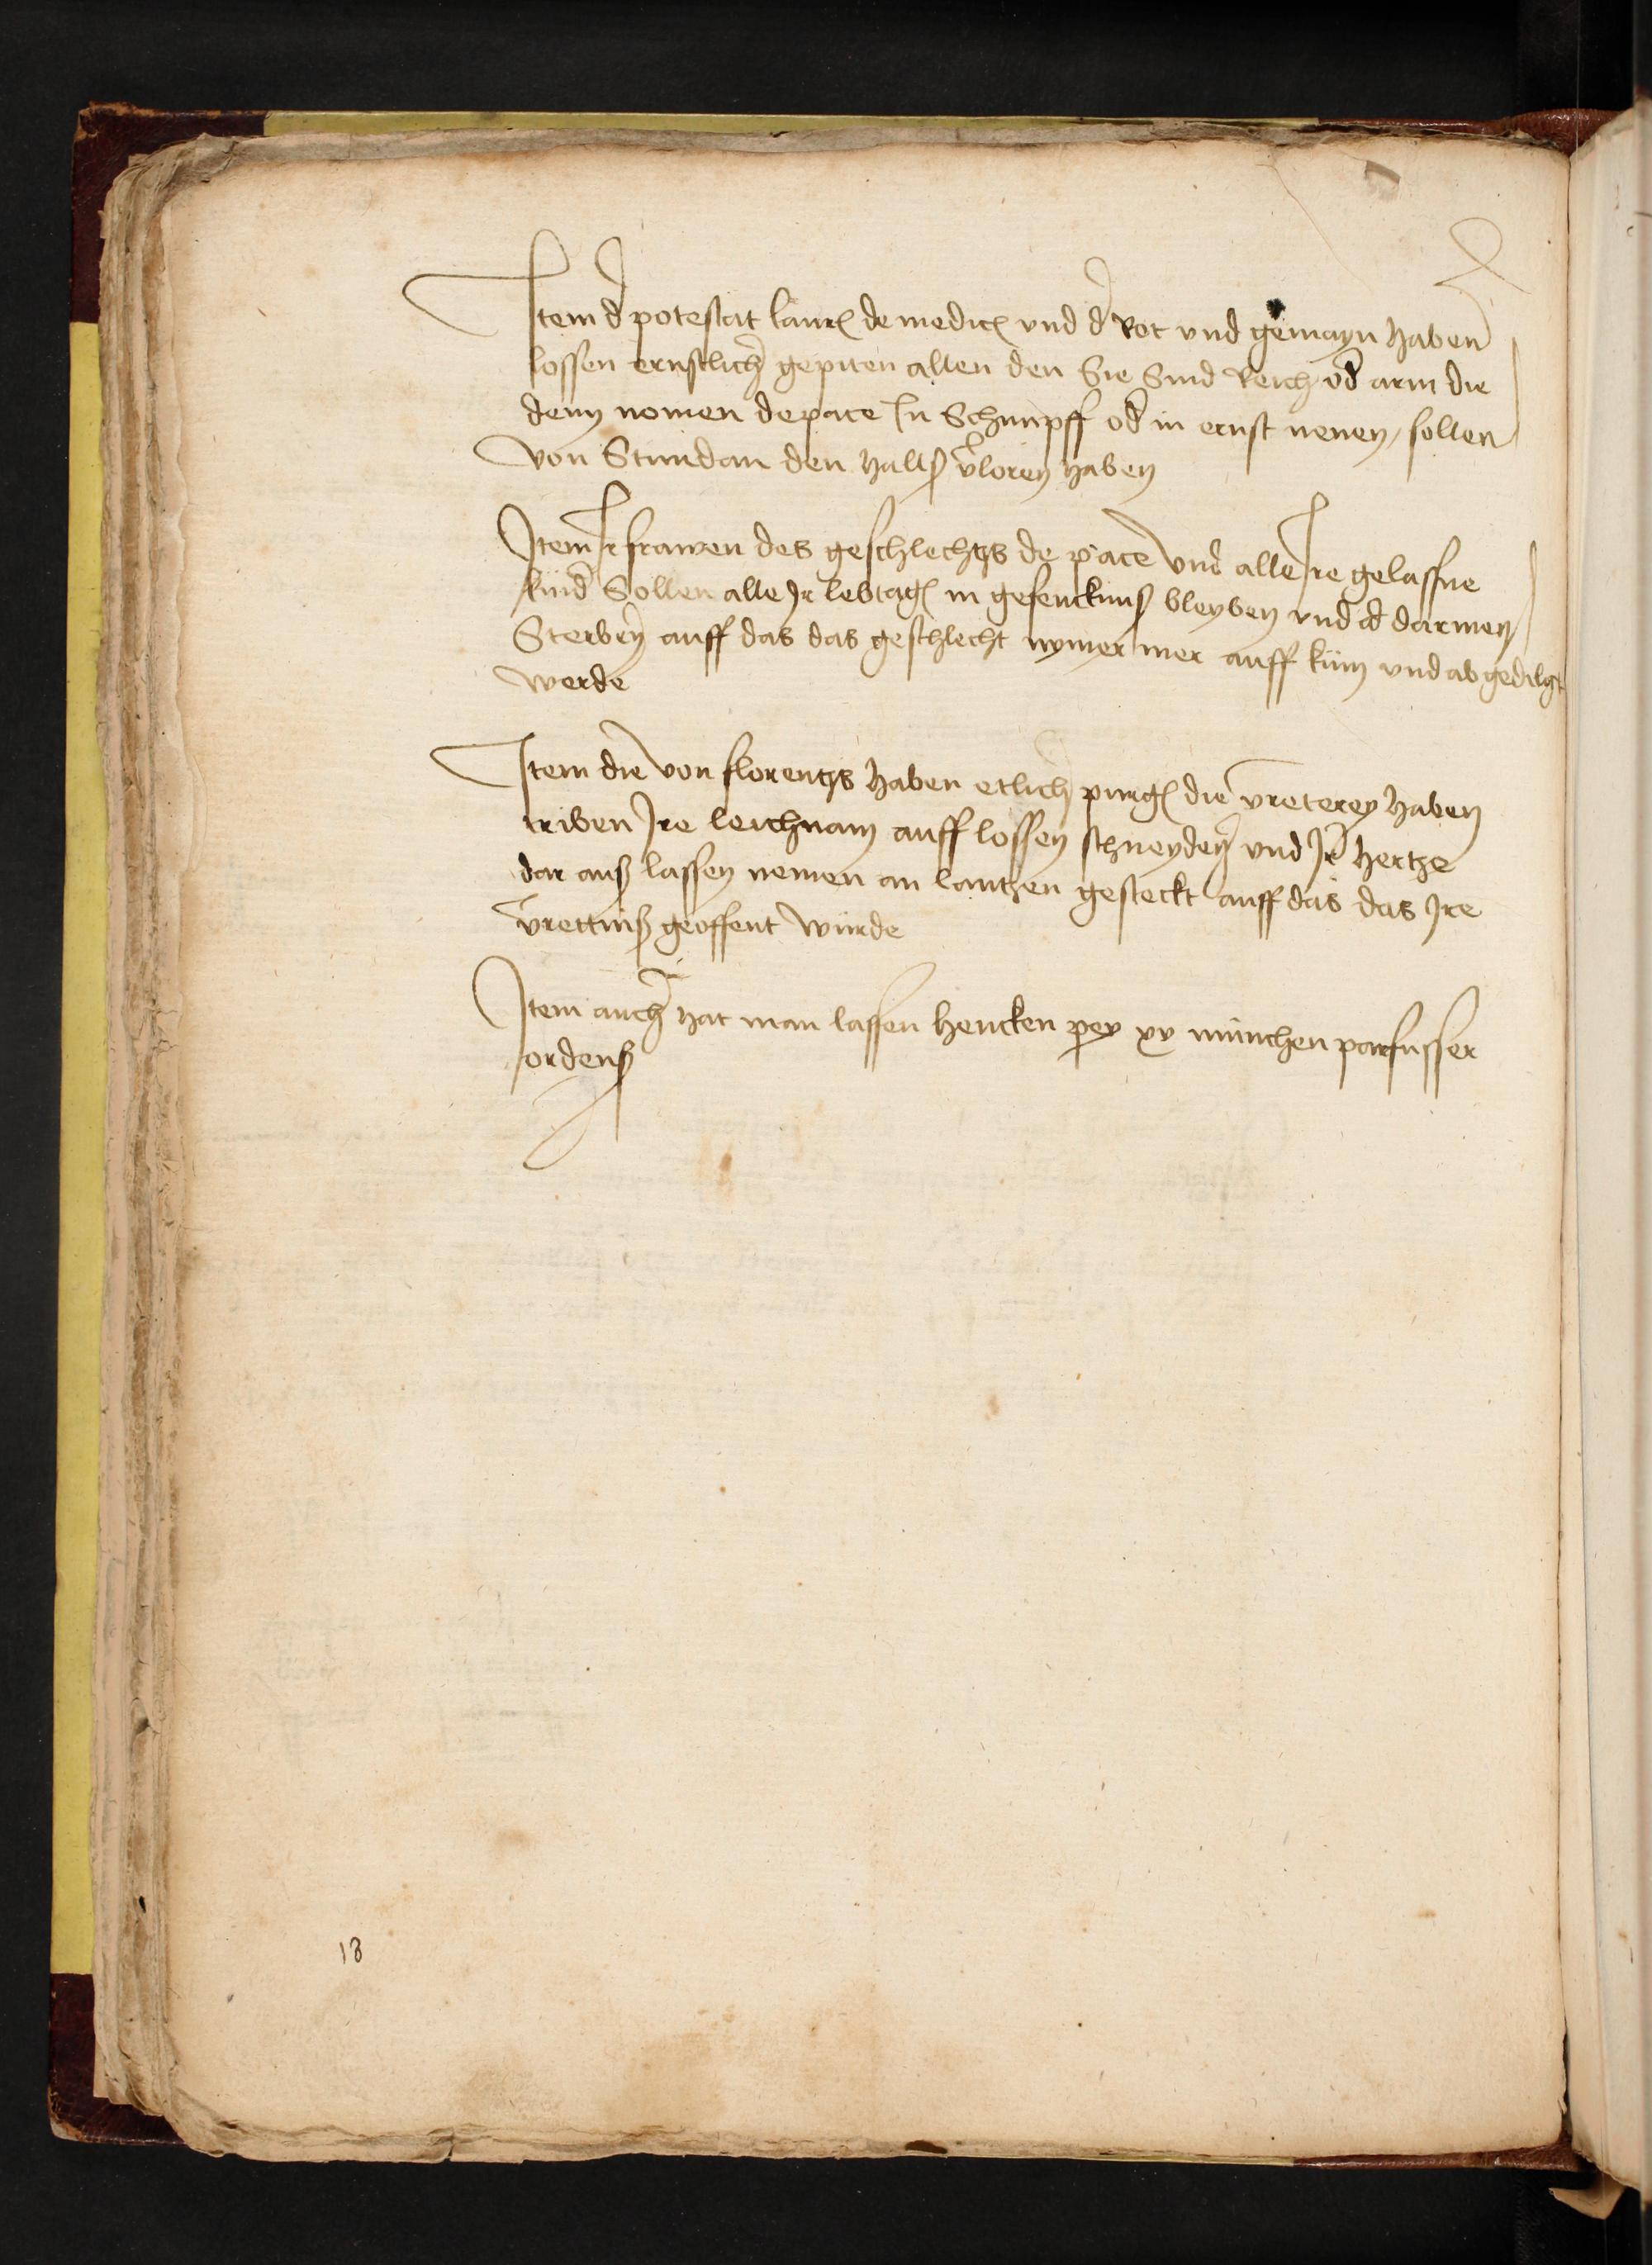 Item d potestat laure de medice vnd d Rot vnd gemayn haben
lossen ernstlich gepiten allen den Sie Sind Reich od arm die
deny nomen de pace In Schimpff od in ernst nenen / sollen
von Stundan den hallß vloren haben
Item Ir frawen des geschlechtz de pace vnd alle Ire gelassne
kind Sollen alle Ir lebtag in gefencknuß bleyben vnd darinen
Sterben auff das das geschlecht nymer mer auff kum vnd ab gedilgt
werde
Item die von florentz haben etlich purge die vreterey haben
triben Ire leichnam auff lossen schneyden vnd Ir hertze
dar auß lassen nemen an lantzen gesteckt auff das das Ire
vrettniß geoffent wurde
Item auch hat man lassen hencken pey xx münchen parfusser
ordenß
18